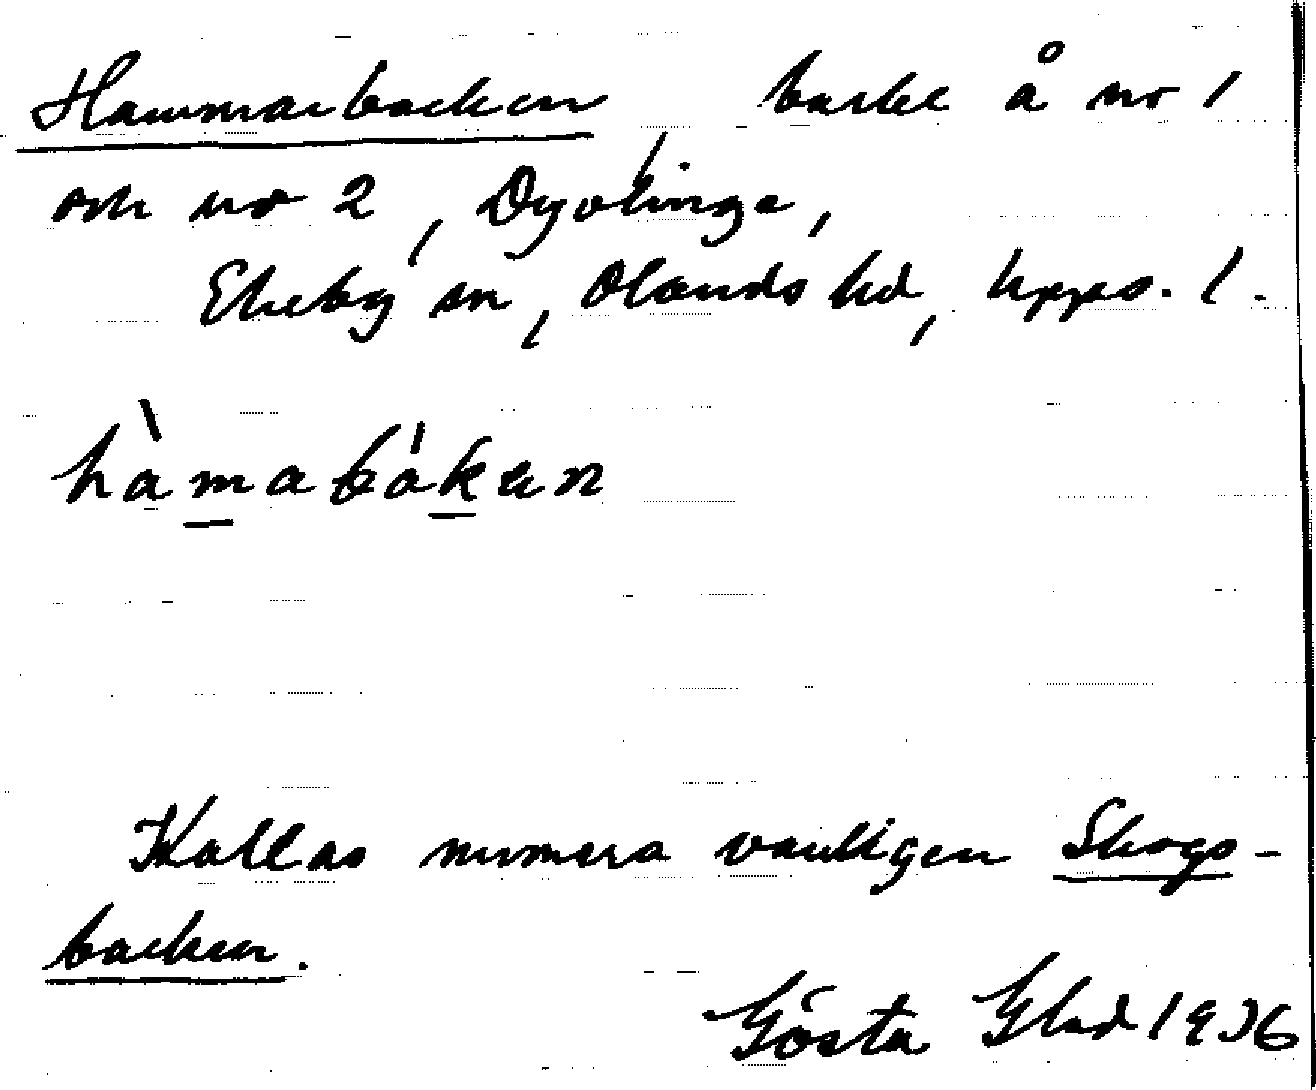 Hammarbacken, backe å nr 1
och nr 2, Dyvlinge,
Ekeby sn, Olands hd, Upps. l.
hàmabákæn
Kallas numera vanligen Skogs-
backen.
Gösta Glad 1936